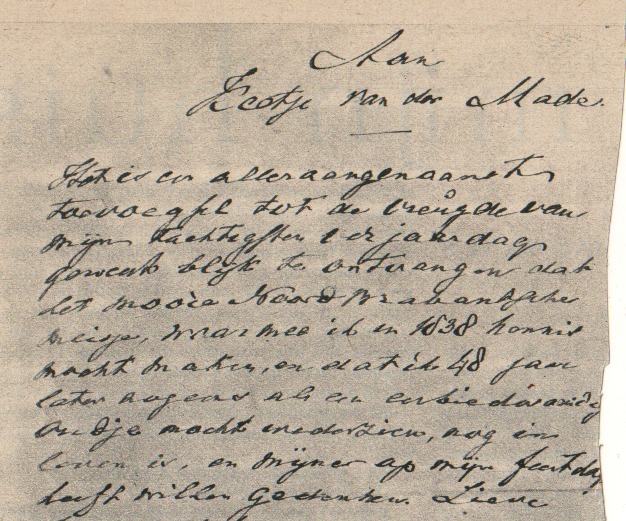 Aan
Keetje van der Made.
Het is een alleraangenaamst
toevoegsel tot de vreugde van
mijn tachtigsten verjaardag
geweest blijk te ontvangen dat
het mooie Noord Brabantsche
meisje, waarmee ik in 1838 kennis
mocht maken, en dat ik 48 jaar
later nogeens als een eerbiedwaardig
oudje mocht wederzien, nog in
leven is, en mijner op mijn feestdag
heeft willen gedenken. Lieve